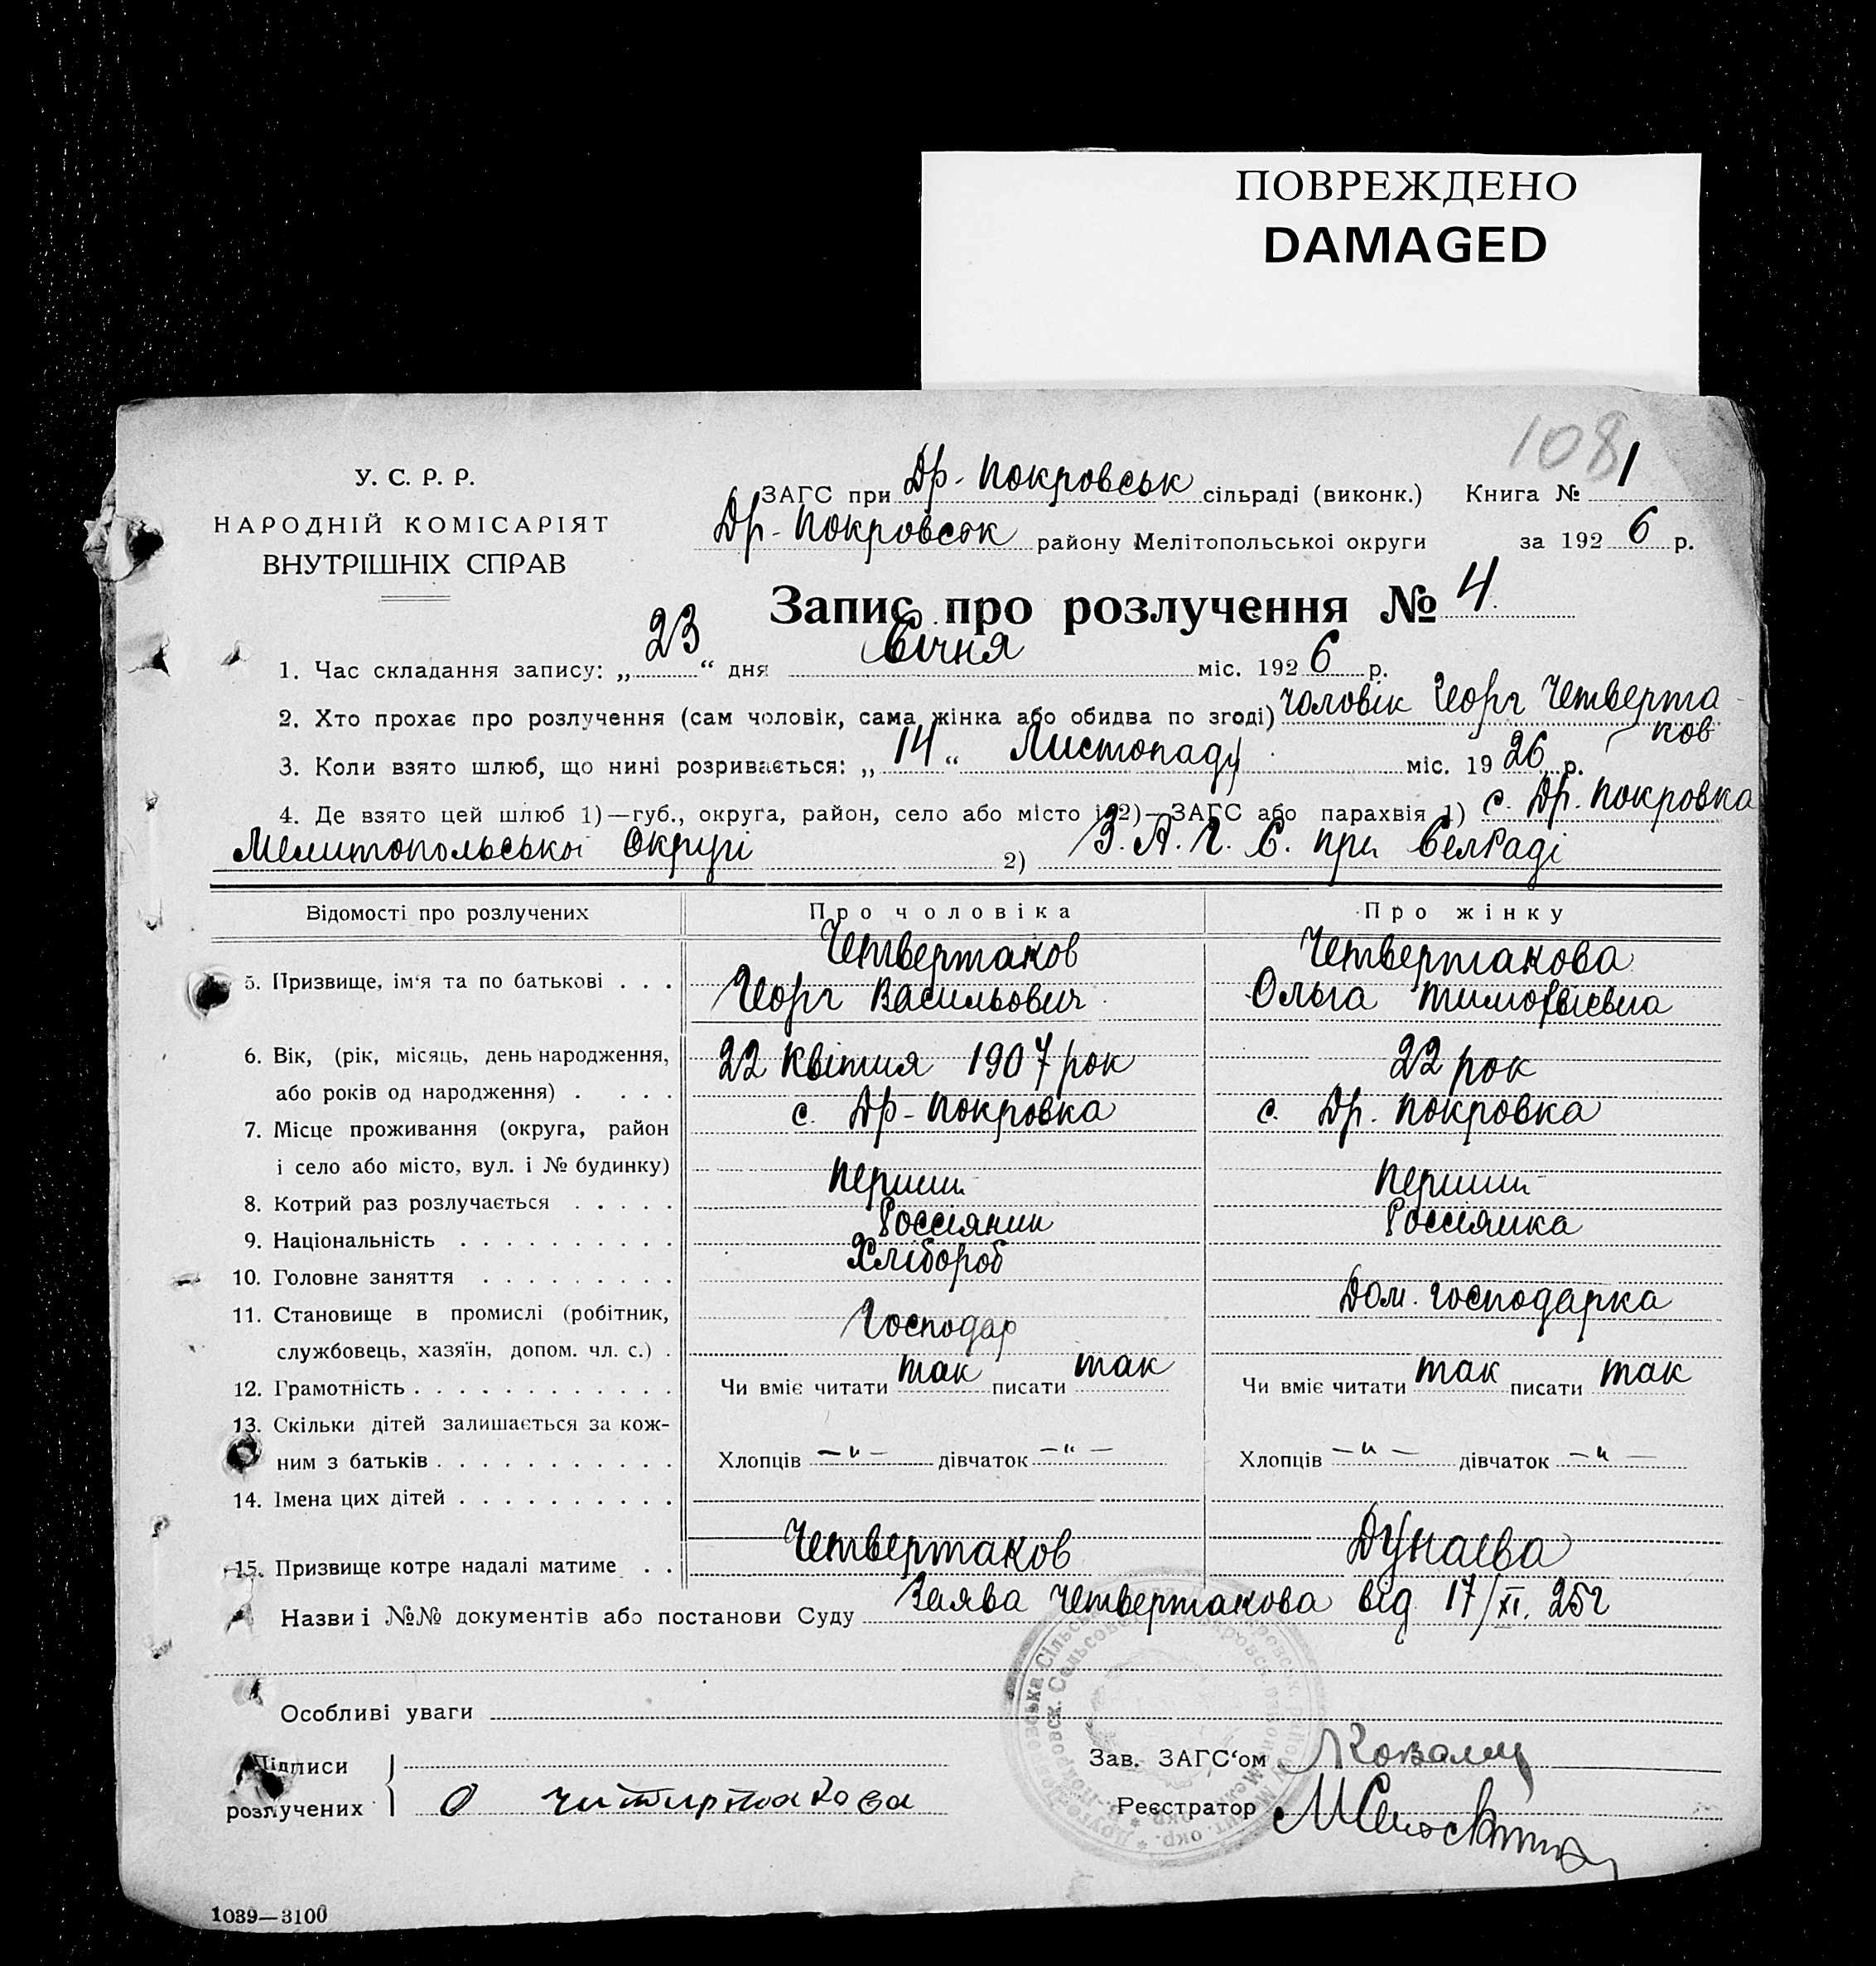 ПОВРЕЖДЕНО
DAMAGED
108
У. С. Р. Р.
НАРОДНІЙ КОМІСАРІЯТ
ВНУТРІШНІХ СПРАВ
ЗАГС при Др- Покровськ сільраді (виконк.) Книга № 1
Др- Покровськ району Мелітопольської округи за 1926 р.
Запис про розлучення № 4.
1. Час складання запису: „23“ дня Січня міс. 1926 р.
2. Хто прохає про розлучення (сам чоловік, сама жінка або обидва по згоді) чоловік Георг Четверта
ков
3. Коли взято шлюб, що нині розривається: „14“ Листопаду міс. 1926 р.
4. Де взято цей шлюб 1)—губ., округа, район, село або місто і 2)—ЗАГС або парахвія 1) с. Др. Покровка
Мелитопольської Округі 2) З. А. Г. С. при Селраді
Відомості про розлучених Про чоловіка Про жінку
5. Призвище, ім‘я та по батькові . . . Четвертаков Георг Васильович Четвертакова Ольга Тимофвієвна
6. Вік, (рік, місяць, день народження, 22 Квітня 1907 рок 22 рок
або років од народження) . . . .
7. Місце проживання (округа, район с. Др- Покровка с. Др. Покровка
і село або місто, вул. і № будинку)
8. Котрий раз розлучається . . . . . Перший Перший
9. Національність . . . . . . . . . . Россіянин Россіянка
10. Головне заняття . . . . . . . . . Хлібороб
11. Становище в промислі (робітник, Господар Дом. господарка
службовець, хазяїн, допом. чл. с.) .
12. Грамотність . . . . . . . . . . . . Чи вміє читати так писати так Чи вміє читати так писати так
13. Скільки дітей залишається за кож-
ним з батьків . . . . . . . . . . . Хлопців —„— дівчаток —„— Хлопців —„— дівчаток —„—
14. Імена цих дітей . . . . . . . . . .
15. Призвище котре надалі матиме . . Четвертаков Дунаєва
Назви і №№ документів або постанови Суду Заява Четвертакова від 17/XI. 25 г
Особливі уваги
Підписи
розлучених О читиртакова
Зав. ЗАГС‘ом
Реєстратор
1039—3100